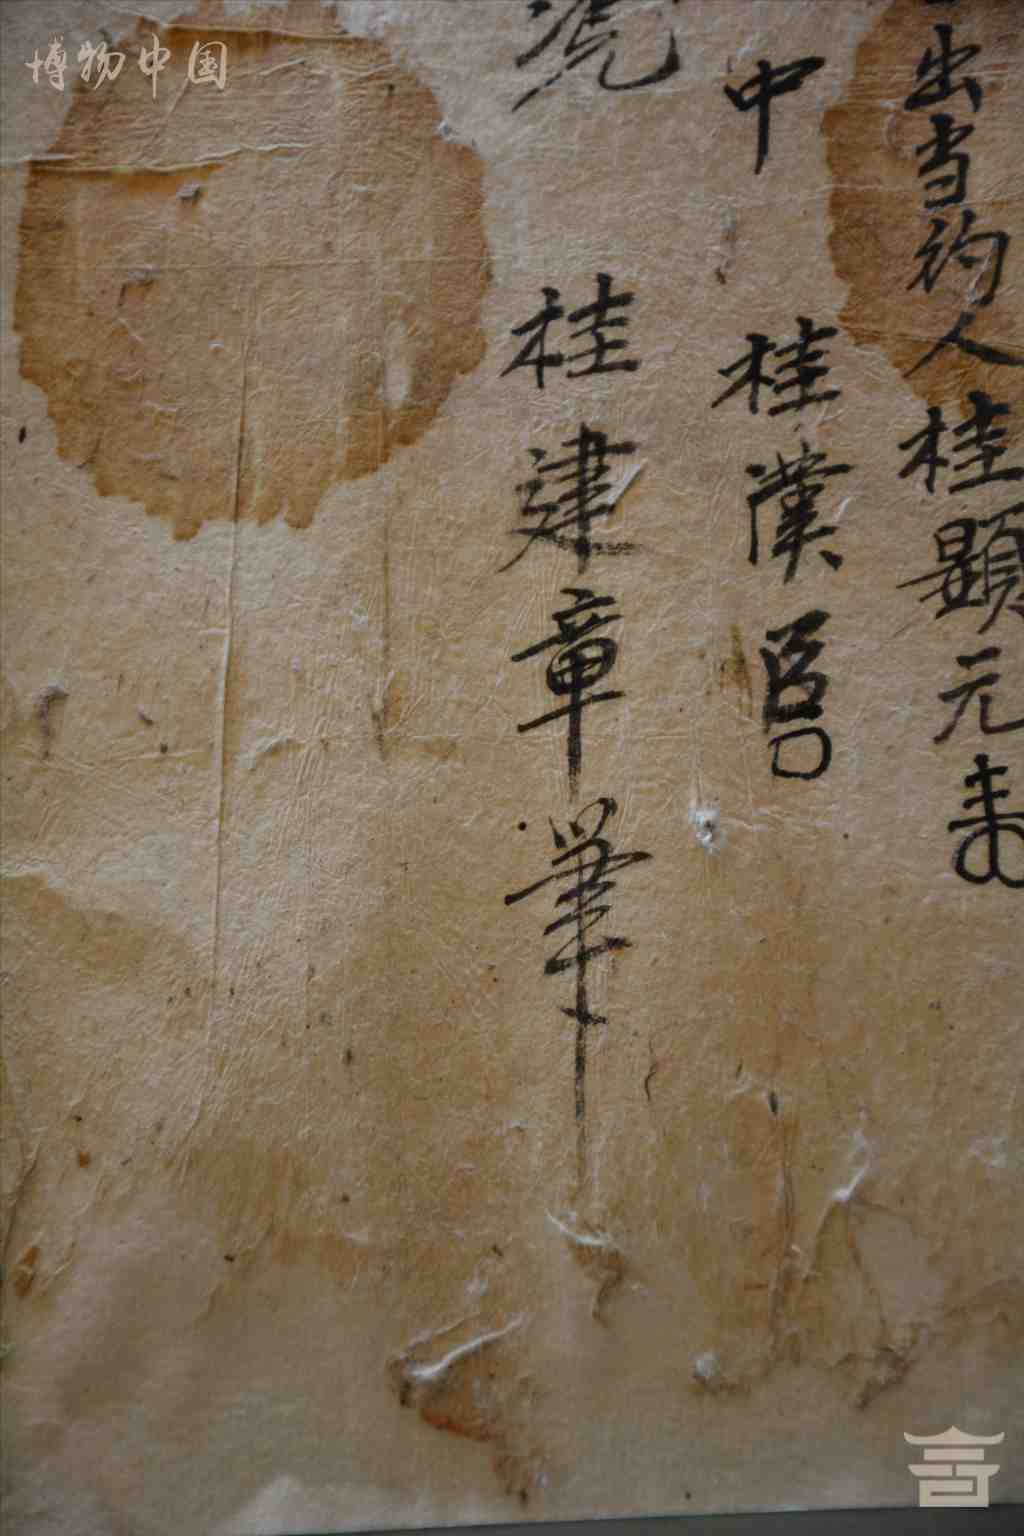 博物中国
出当约人桂顯元
中 桂漢臣
桂建章筆